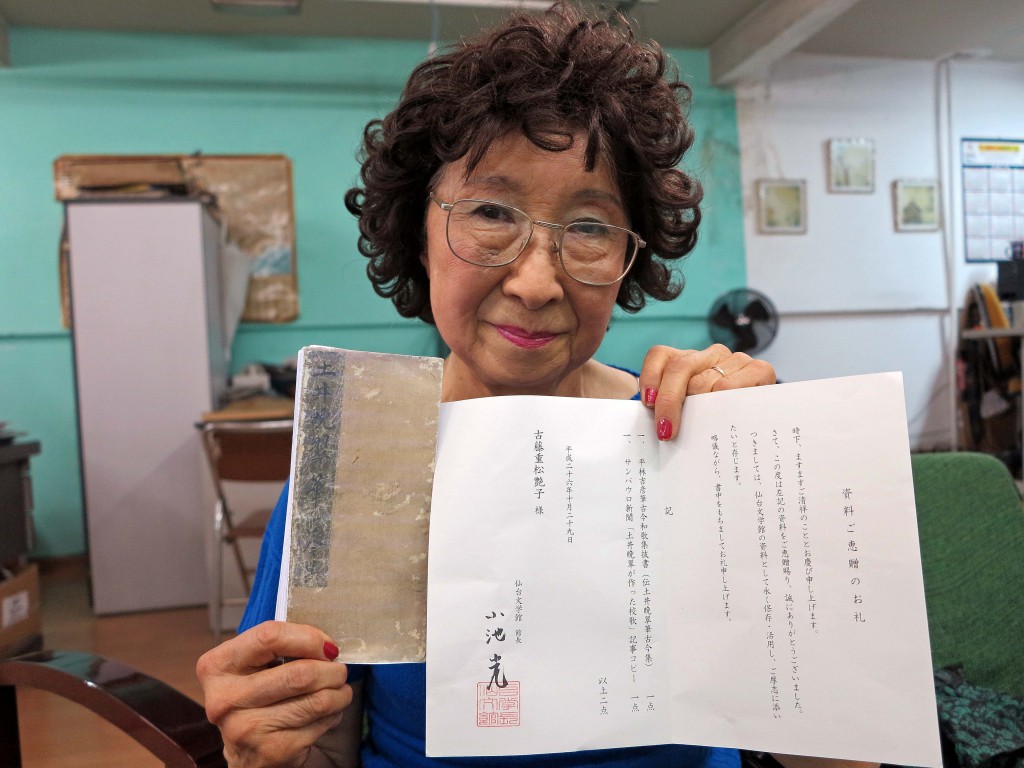 資料ご恵贈のお礼
時下、ますますご清祥のこととお慶び申し上げます。
さて、この度は左記の資料をご恵贈賜り、誠にありがとうございました。
つきましては、仙台文学館の資料として永く保存・活用し、ご厚志に添い
たいと存じます。
略儀ながら、書中をもちましてお礼申し上げます。
記
一、平林古彦筆古今和歌集抜書(伝土井晩翠筆古今集) 一点
一、サンパウロ新聞「土井晩翠が作った校歌」記事コピー 一点
以上二点
平成二十六年十月二十九日
古藤重松艶子 様
仙台文学館 館長
小池光